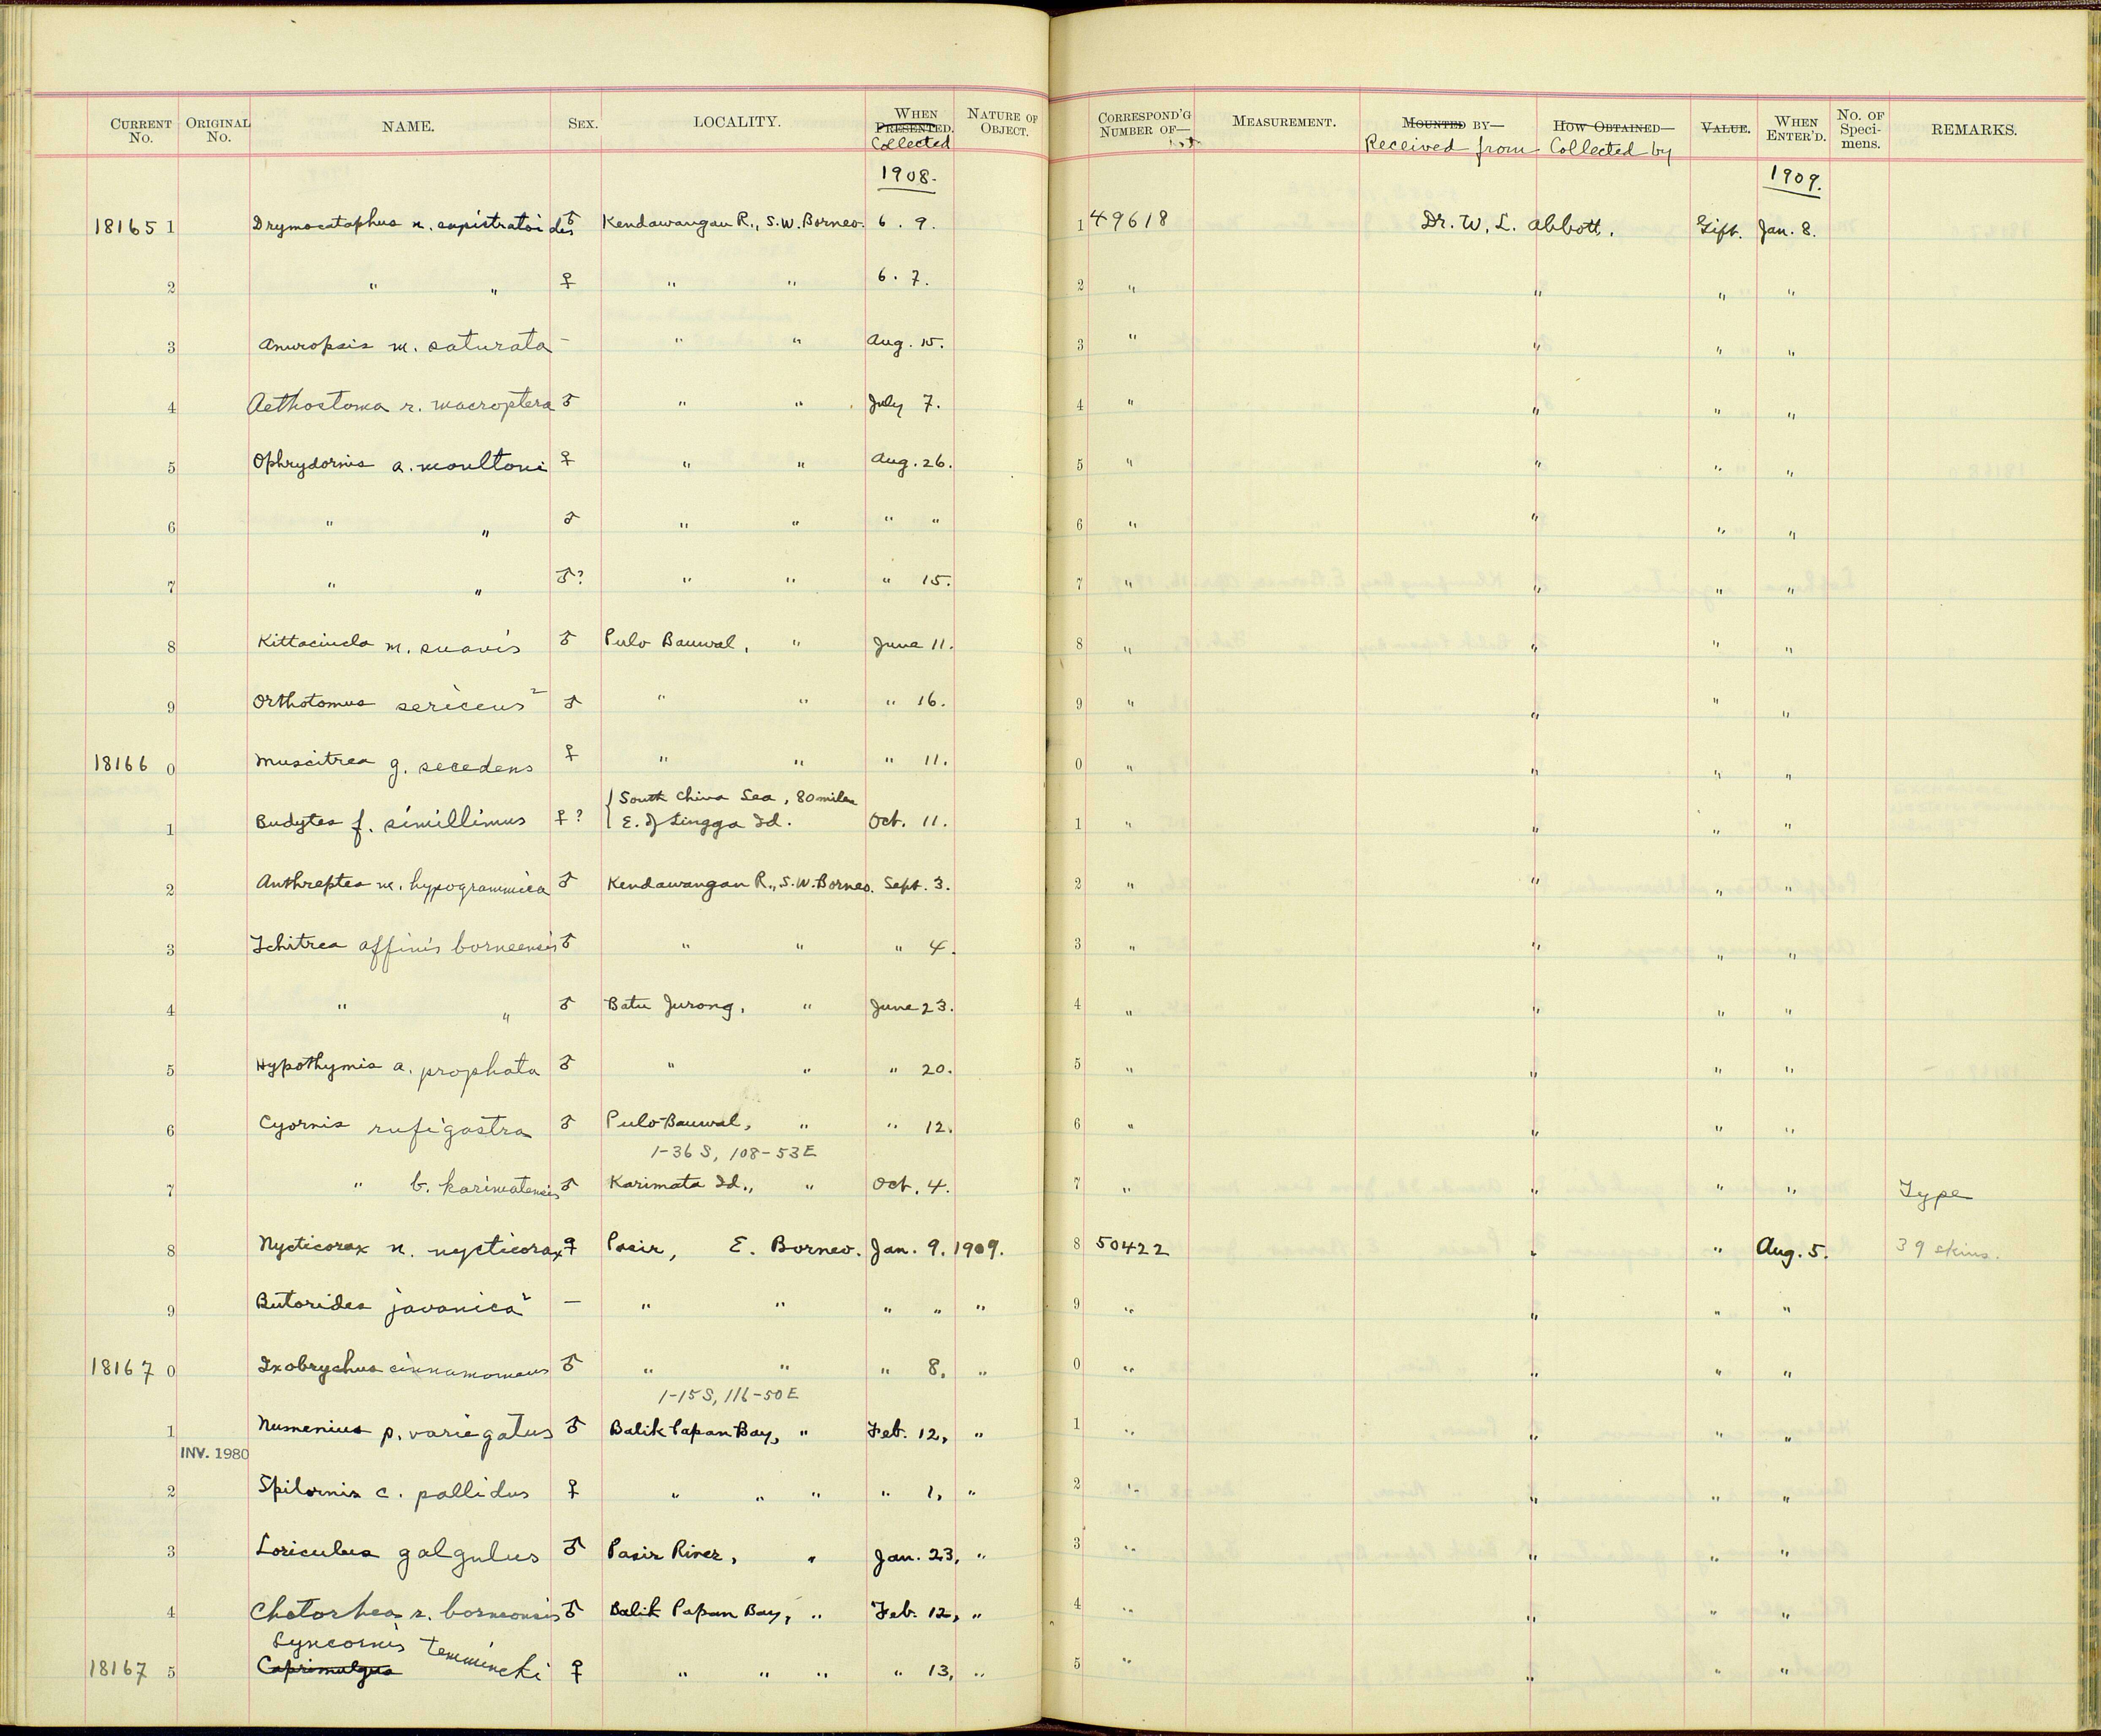 CURRENT No. ORIGINAL No. NAME. SEX. LOCALITY. WHEN PRESENTED. Collected NATURE OF OBJECT. CORRESPOND'G NUMBER OF— MEASUREMENT. MOUNTED BY— Received from HOW OBTAINED— Collected by VALUE. WHEN ENTER'D. No. OF Speci-mens. REMARKS.
1908. 1909.
18165 1 Drymocataphus n. capistratoides ♂ Kendawangan R., S.W. Borneo. 6. 9. 1 49618 Dr. W. L. Abbott. Gift. Jan. 8.
2 " " ♀ " " 6. 7. 2 " " " "
3 Anuropsis m. saturata - " " Aug. 15. 3 " " " "
4 Aethostoma r. macroptera ♂ " " July 7. 4 " " " "
5 Ophrydornis a. moultoni ♀ " " Aug. 26. 5 " " " "
6 " " ♂ " " " " 6 " " " "
7 " " ♂? " " " 15. 7 " " " "
8 Kittacincla m. suavis ♂ Pulo Bauwal, " June 11. 8 " " " "
9 Orthotomus sericeus 2 ♂ " " " 16. 9 " " " "
18166 0 Muscitrea g. secedens ♀ " " " 11. 0 " " " "
1 Budytes f. simillimus ♀? { South China Sea, 80 miles E. of Lingga Id. Oct. 11. 1 " " " "
2 Anthreptes m. hypogrammica ♂ Kendawangan R., S.W. Borneo. Sept. 3. 2 " " " "
3 Tchitrea affinis borneensis ♂ " " " 4. 3 " " " "
4 " " ♂ Batu Jurong, " June 23. 4 " " " "
5 Hypothymis a. prophata ♂ " " " 20. 5 " " " "
6 Cyornis rufigastra ♂ Pulo Bauwal, " " 12. 6 " " " "
1-36 S, 108-53 E
7 " b. karimatensis ♂ Karimata Id., " Oct. 4. 7 " " " " Type
8 Nycticorax n. nycticorax ♀ Pasir, E. Borneo. Jan. 9. 1909. 8 50422 " " Aug. 5. 39 skins.
9 Butorides javanica 2 — " " " " " 9 " " " "
18167 0 Ixobrychus cinnamomeus ♂ " " " 8, " 0 " " " "
1-15 S, 116-50 E
1 Numenius p. variegatus ♂ Balik Papan Bay, " Feb. 12, " 1 " " " "
INV. 1980
2 Spilornis c. pallidus ♀ " " " " 1, " 2 " " " "
3 Loriculus galgulus ♂ Pasir River, " Jan. 23, " 3 " " " "
4 Chotorhea r. borneonsis ♂ Balik Papan Bay, " Feb. 12, " 4 " " " "
Lyncornis temmincki
18167 5 Caprimulgus ♀ " " " " 13, " 5 " " " "